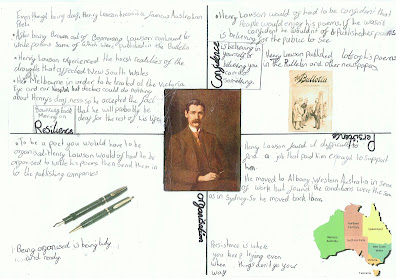 Even though being deaf, Henry Lawson became a famous Australian
Poet.
After being Henry Lawson continued to
write poems Some of which were published in the Bulletin
Henry Lawson experienced the harsh realities of the
droughts that affected New South Wales
Melbourne in order to be treated at the Victoria
Eye and Ear hospital but doctors could do nothing
about Henry's deafness so he accepted the fact
deaf for the rest of his life
Bouncing back
Resilience
Henry Lawson would of had to be confident that
People would enjoy his poems. If he wasn't
confident he wouldn't of published his poems
for the public to see
is believing in
yourself
believing you
can do something.
Confidence
Henry Lawson Published lots of his poems
in the Bulletin and other newspapers
The
Bulletin
Persistence
To be a poet you would have to be
organised. Henry Lawson would of had to be
organised to write his poems then send them to
the publishing companies
Being organised is being tidy
and ready
Organisation
Henry Lawson found it difficult to
find a job that paid him enough to support
him.
He moved to Albany Western Australia in search
of work but found the conditions were the same
as in Sydney. So he moved back home
Persistence is where
you keep trying even
when things don't go your
way
Western
Australia
Northern
Territory
Queensland
South
Australia
New South Wales
Victoria
Tasmania